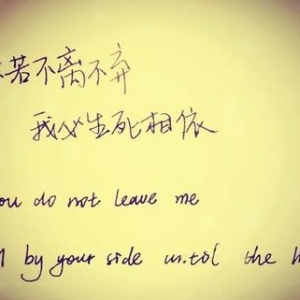 若不离不弃
我必生死相依
ou do not leave me
by your side until the